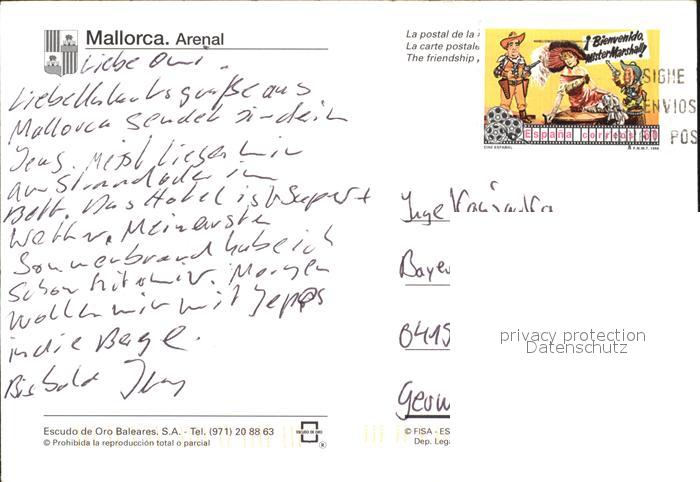 Mallorca. Arenal
La postal de la
La carte postale
The friendship
¡Bienvenido,
Mister Marshall!
SIGNE
ENVIOS
POS
España correos
CINE ESPAÑOL
F.N.M.T. 1996
Liebe Omi.
Liebe Urlaubsgrüße aus
Mallorca sendet dir dein
Jens. Meist liegen wir
am Strand oder im
Bett. Das Hotel ist super +
Wetter. Meinen ersten
Sonnenbrand habe ich
schon hinter mir. Morgen
wollen wir mit Jeeps
in die Berge.
Bis bald Jens
Inge
Baye
0415
privacy protection
Datenschutz
Escudo de Oro Baleares. S.A. - Tel. (971) 20 88 63
© Prohibida la reproducción total o parcial
ESCUDO DE ORO
®
© FISA - ES
Dep. Lega